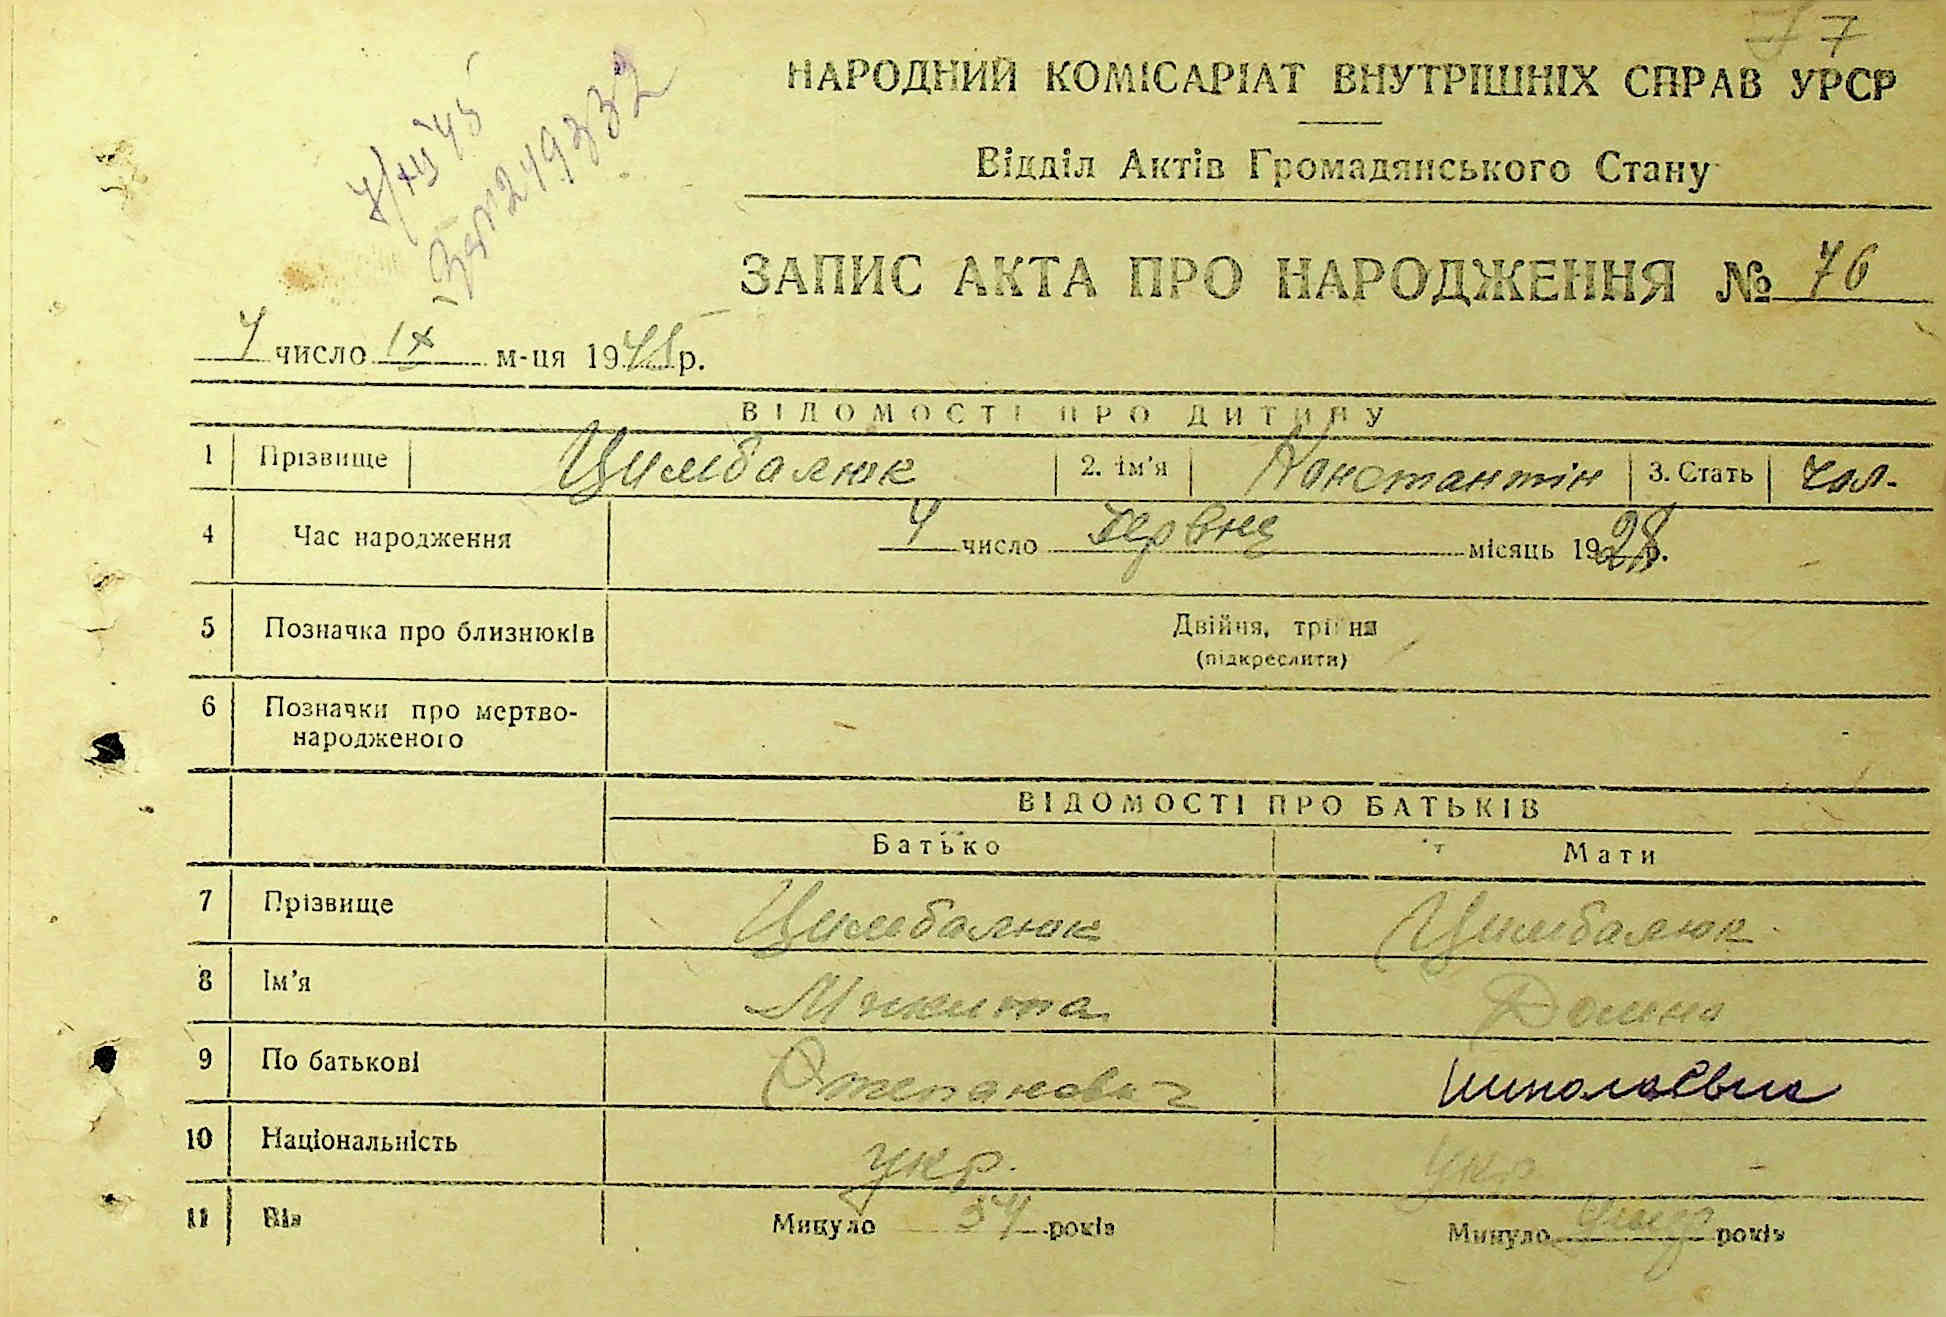 7
НАРОДНИЙ КОМІСАРІАТ ВНУТРІШНІХ СПРАВ УРСР
Відділ Актів Громадянського Стану
ЗАПИС АКТА ПРО НАРОДЖЕННЯ № 76
4 число IX м-ця 1945 р.
ВІДОМОСТІ ПРО ДИТИНУ
1 Прізвище Цимбалюк 2. Ім'я Константін 3. Стать чол.
4 Час народження 4 число червня місяць 1928 р.
5 Позначка про близнюків Двійня, трійня
(підкреслити)
6 Позначки про мертво-
народженого
ВІДОМОСТІ ПРО БАТЬКІВ
Батько Мати
7 Прізвище Цимбалюк Цимбалюк
8 Ім'я Микита
9 По батькові Степанович
10 Національність укр. укр
11 Вік Минуло 54 років Минуло років